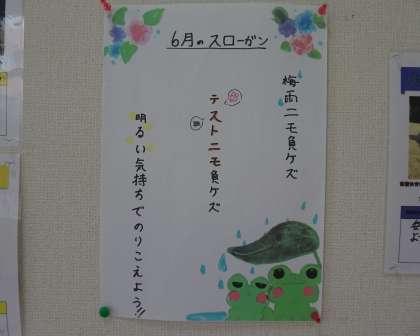 6月のスローガン
梅雨ニモ負ケズ
テストニモ負ケズ
明るい気持ちでのりこえよう!!